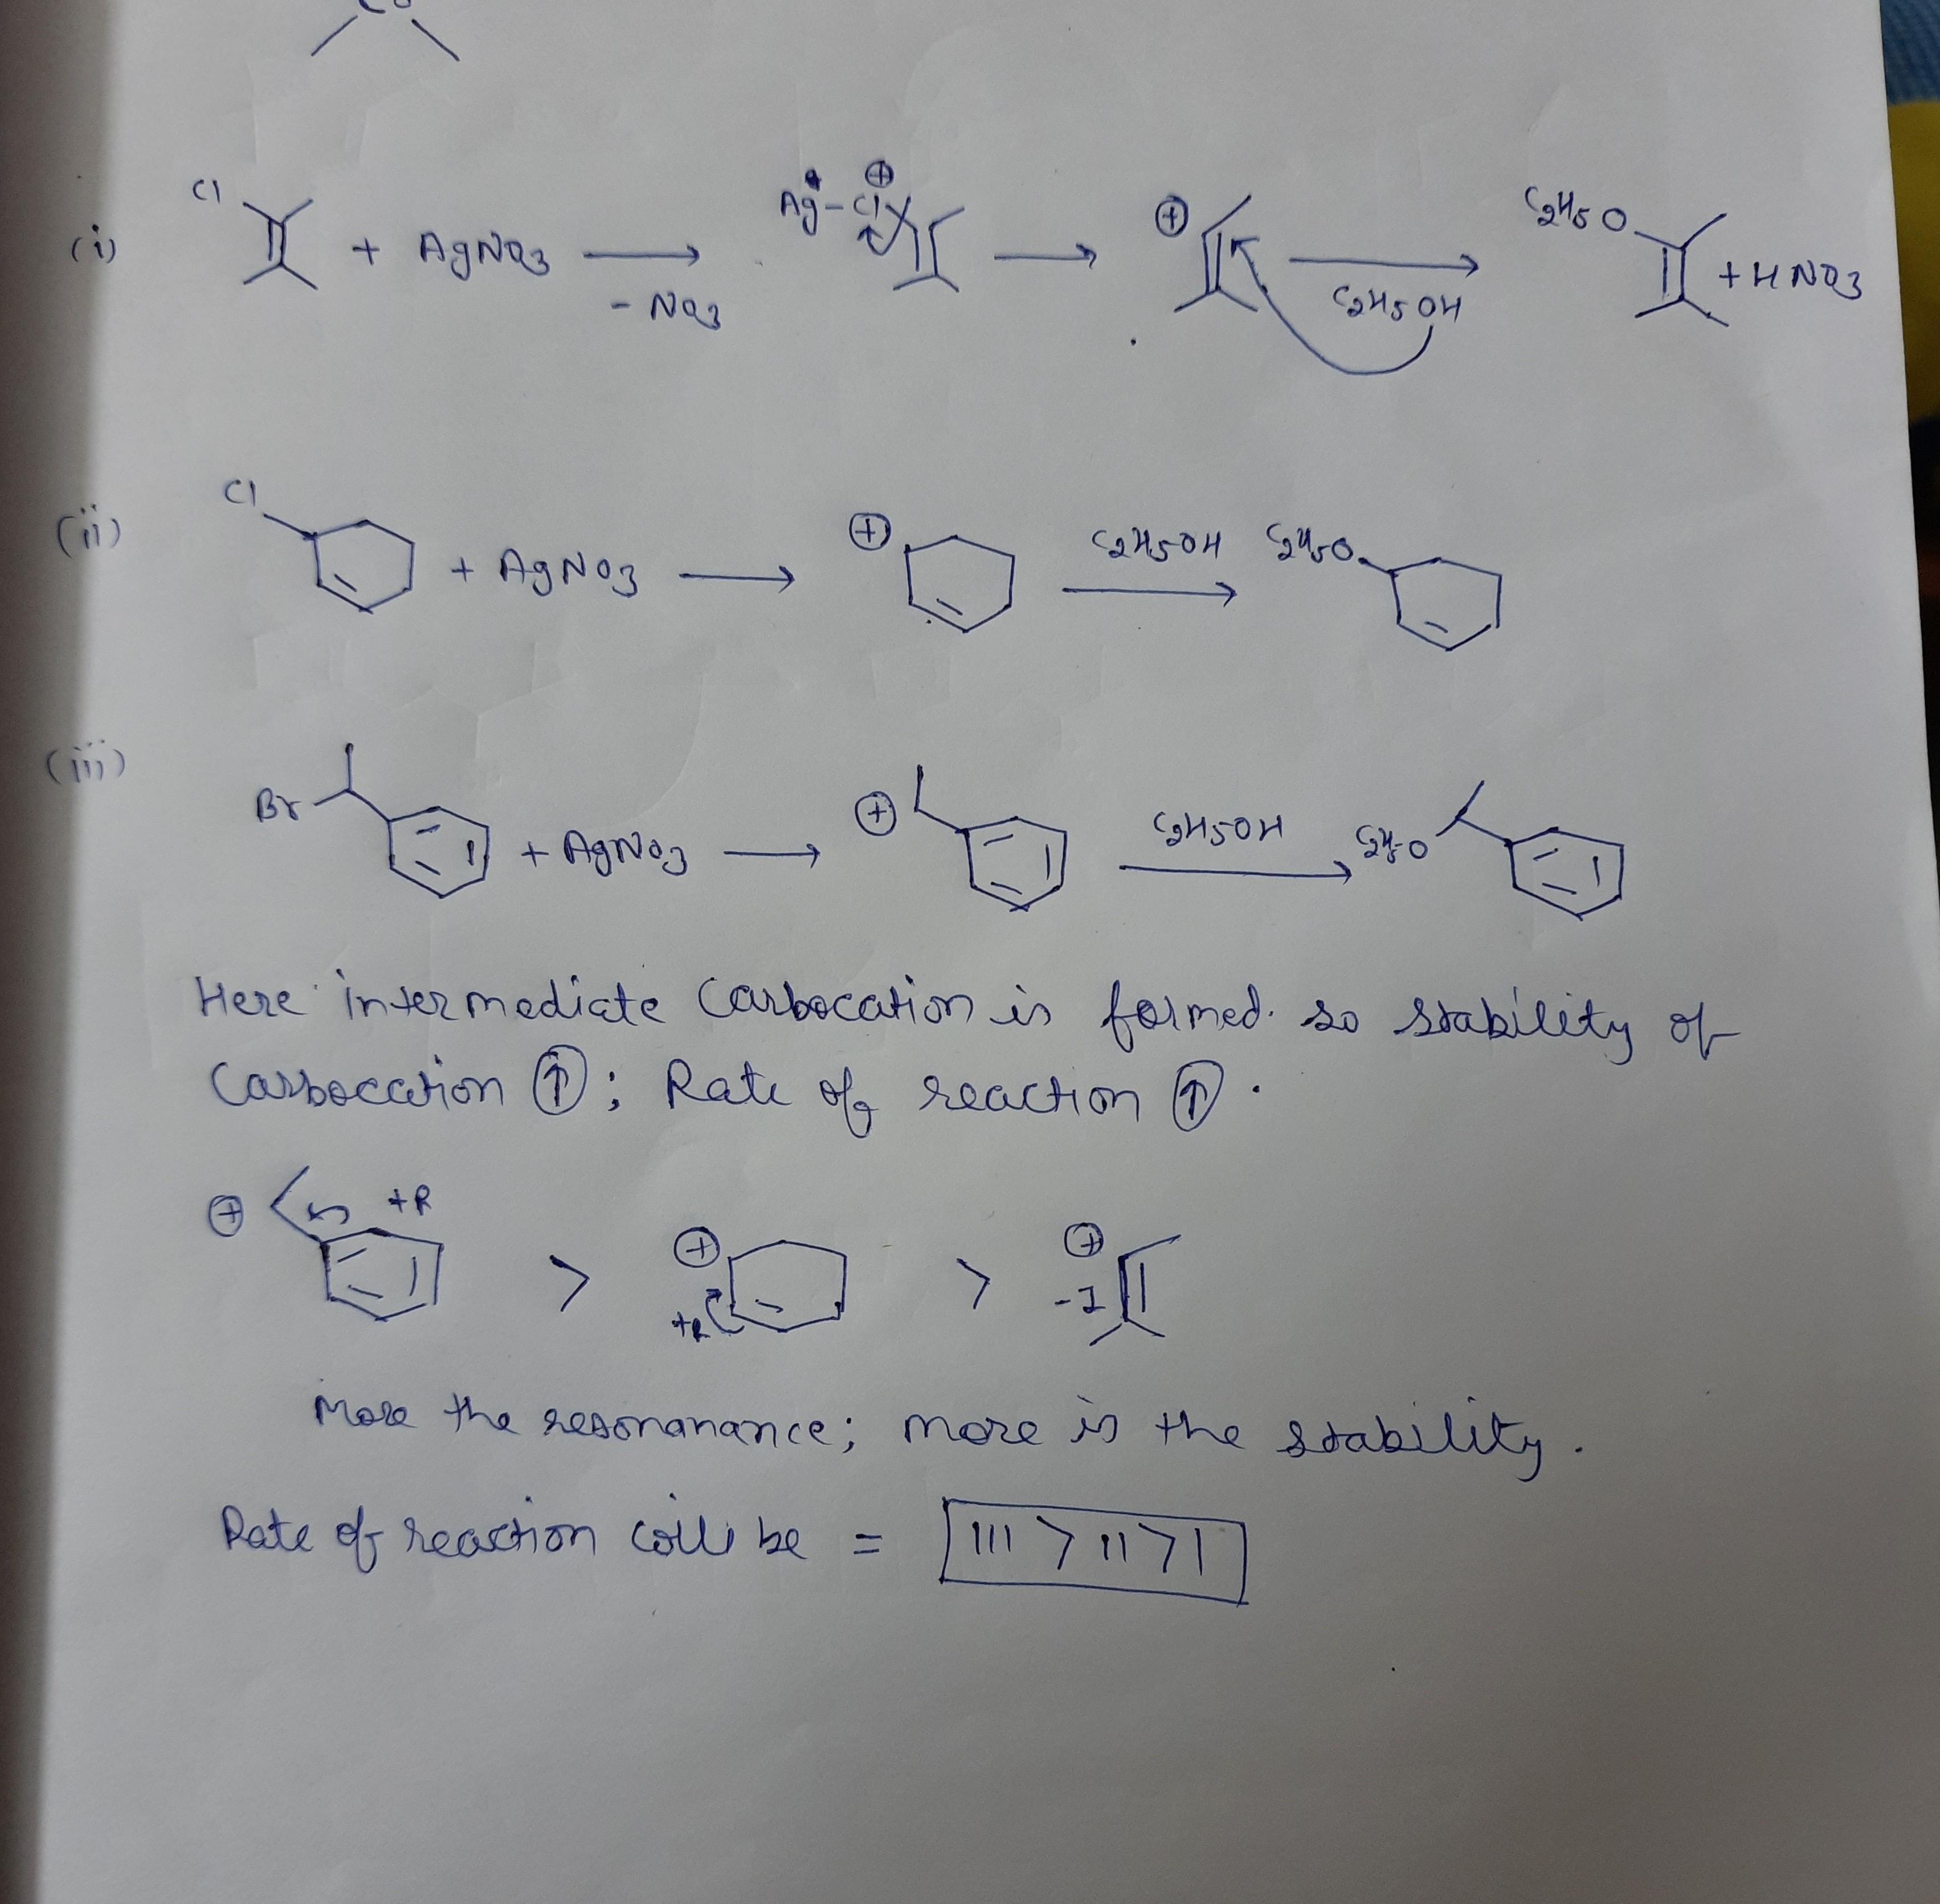 (i) Cl + AgNO3 → - NO3 Ag - Cl ⊕ → ⊕ → C2H5OH C2H5O + HNO3
(ii) Cl + AgNO3 → ⊕ C2H5OH → C2H5O
(iii) Br + AgNO3 → ⊕ C2H5OH → C2H5O
Here intermediate Carbocation is formed. so stability of
Carbocation ↑; Rate of reaction ↑.
⊕ +R > ⊕ +R > ⊕ -I
More the resonanance; more is the stability.
Rate of reaction will be = III > II > I